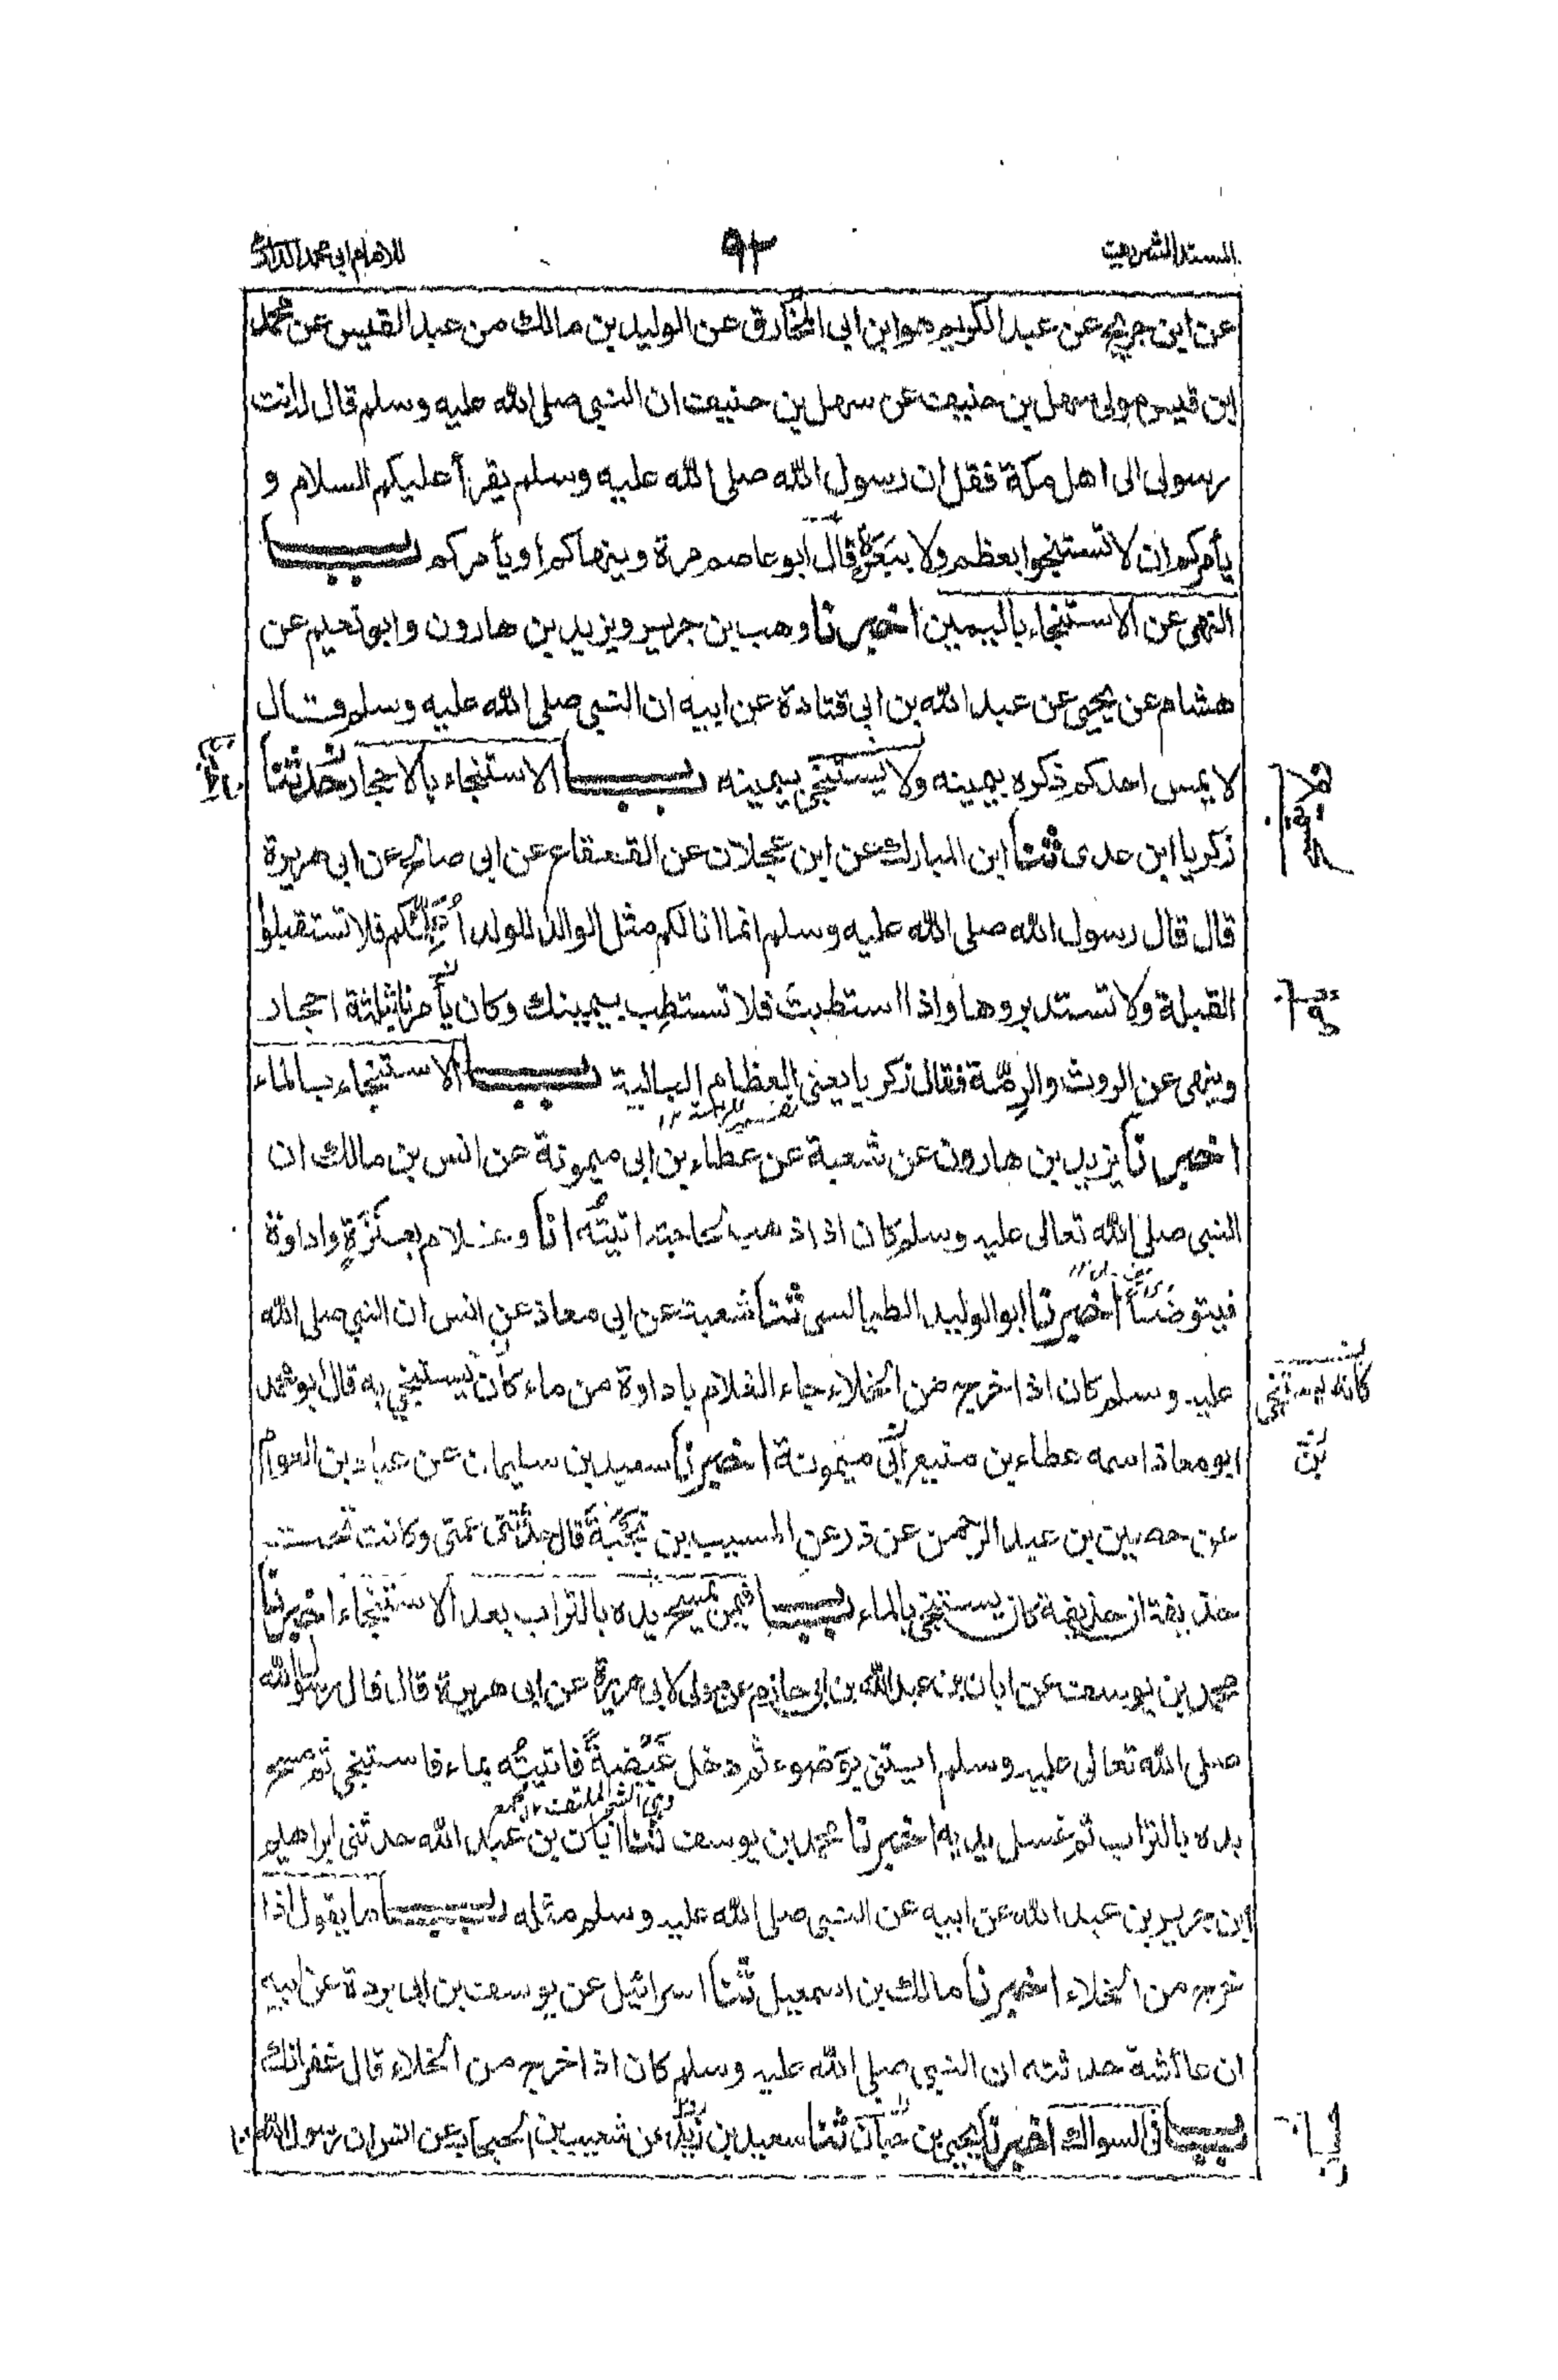 المسند الشريف ٩٢ للامام ابى محمد الدارمى
عن ابن جريج عن عبد الكريم هو ابن ابى المخارق عن الوليد بن مالك من عبد القيس عن محمد
ابن قيس مولى سهل بن حنيف عن سهل بن حنيف ان النبى صلى الله عليه وسلم قال له انت
رسولى الى اهل مكة فقل ان رسول الله صلى الله عليه وسلم يقرأ عليكم السلام و
يأمركم ان لا تستنجوا بعظم ولا ببعرة قال ابو عاصم مرة وينهاكم او يأمركم باب
النهى عن الاستنجاء باليمين اخبرنا وهب بن جرير ويزيد بن هارون وابو نعيم عن
هشام عن يحيى عن عبد الله بن ابى قتادة عن ابيه ان النبى صلى الله عليه وسلم قال
لا يمس احدكم ذكره بيمينه ولا يستنجى بيمينه باب الاستنجاء بالاحجار حدثنا
زكريا ابن عدى ثنا ابن المبارك عن ابن عجلان عن القعقاع عن ابى صالح عن ابى هريرة
قال قال رسول الله صلى الله عليه وسلم انما انا لكم مثل الوالد للولد اعلمكم فلا تستقبلوا
القبلة ولا تستدبروها واذا استطبت فلا تستطب بيمينك وكان يأمرنا بثلثة احجار
وينهى عن الروث والرمّة فقال زكريا يعنى العظام البالية باب الاستنجاء بالماء
اخبرنا يزيد بن هارون عن شعبة عن عطاء بن ابى ميمونة عن انس بن مالك ان
النبى صلى الله تعالى عليه وسلم كان اذا ذهب لحاجته اتيته انا وغلام بعنزة واداوة
فيتوضأ اخبرنا ابو الوليد الطيالسى ثنا شعبة عن ابى معاذ عن انس ان النبى صلى الله
عليه وسلم كان اذا خرج من الخلاء جاء الغلام باداوة من ماء كان يستنجى به قال ابو محمد
كانه يستنجى
ابو معاذ اسمه عطاء بن منيع ابى ميمونة اخبرنا سعيد بن سليمان عن عباد بن العوام
بن
عن حصين بن عبد الرحمن عن ذر عن المسيب بن نجبة قال حدثتنى عمتى وكانت تحت
حذيفة ان حذيفة كان يستنجى بالماء باب فيمن يمسح يده بالتراب بعد الاستنجاء اخبرنا
محمد بن يوسف عن ابان بن عبد الله بن ابى حازم عن مولى لابى هريرة عن ابى هريرة قال قال رسول الله
صلى الله تعالى عليه وسلم ايتنى بوضوء ثم دخل غيضة فاتيته بماء فاستنجى ثم مسح
يده بالتراب ثم غسل يديه اخبرنا محمد بن يوسف ثنا ابان بن عبد الله حدثنى ابراهيم
ابن جرير بن عبد الله عن ابيه عن النبى صلى الله عليه وسلم مثله باب ما يقول اذا
خرج من الخلاء اخبرنا مالك بن اسمعيل ثنا اسرائيل عن يوسف بن ابى بردة عن ابيه
ان عائشة حدثته ان النبى صلى الله عليه وسلم كان اذا خرج من الخلاء قال غفرانك
باب فى السواك اخبرنا يحيى بن حبان ثنا سعيد بن زيد عن شعيب بن الحبحاب عن انس ان رسول الله